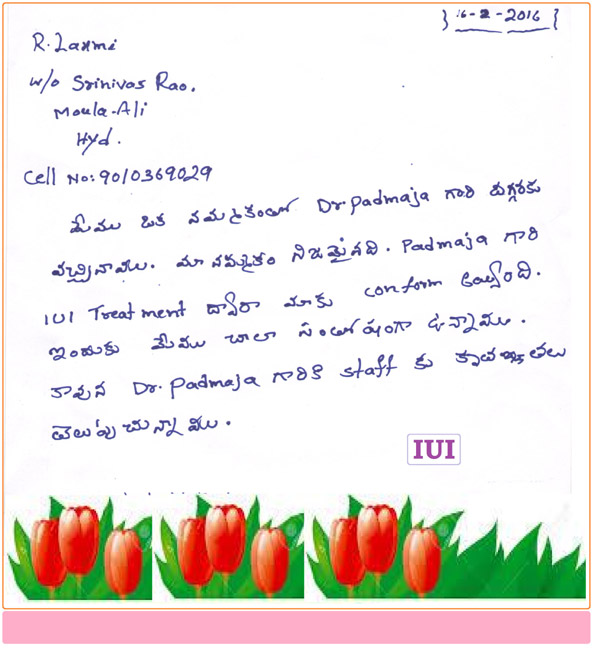 } 16-2-2016 }
R. Laxmi
W/o Srinivas Rao.
Moula-Ali
Hyd.
Cell No: 9010369029
మేము ఒక నమ్మకంతో Dr. Padmaja గారి దగ్గరకు
వచ్చినాము. మా నమ్మకం నిజమైనది. Padmaja గారి
IUI Treatment ద్వారా మాకు conform అయ్యింది.
ఇందుకు మేము చాలా సంతోషంగా ఉన్నాము.
కావున Dr. Padmaja గారికి staff కు కృతజ్ఞతలు
తెలుపుచున్నాము.
IUI